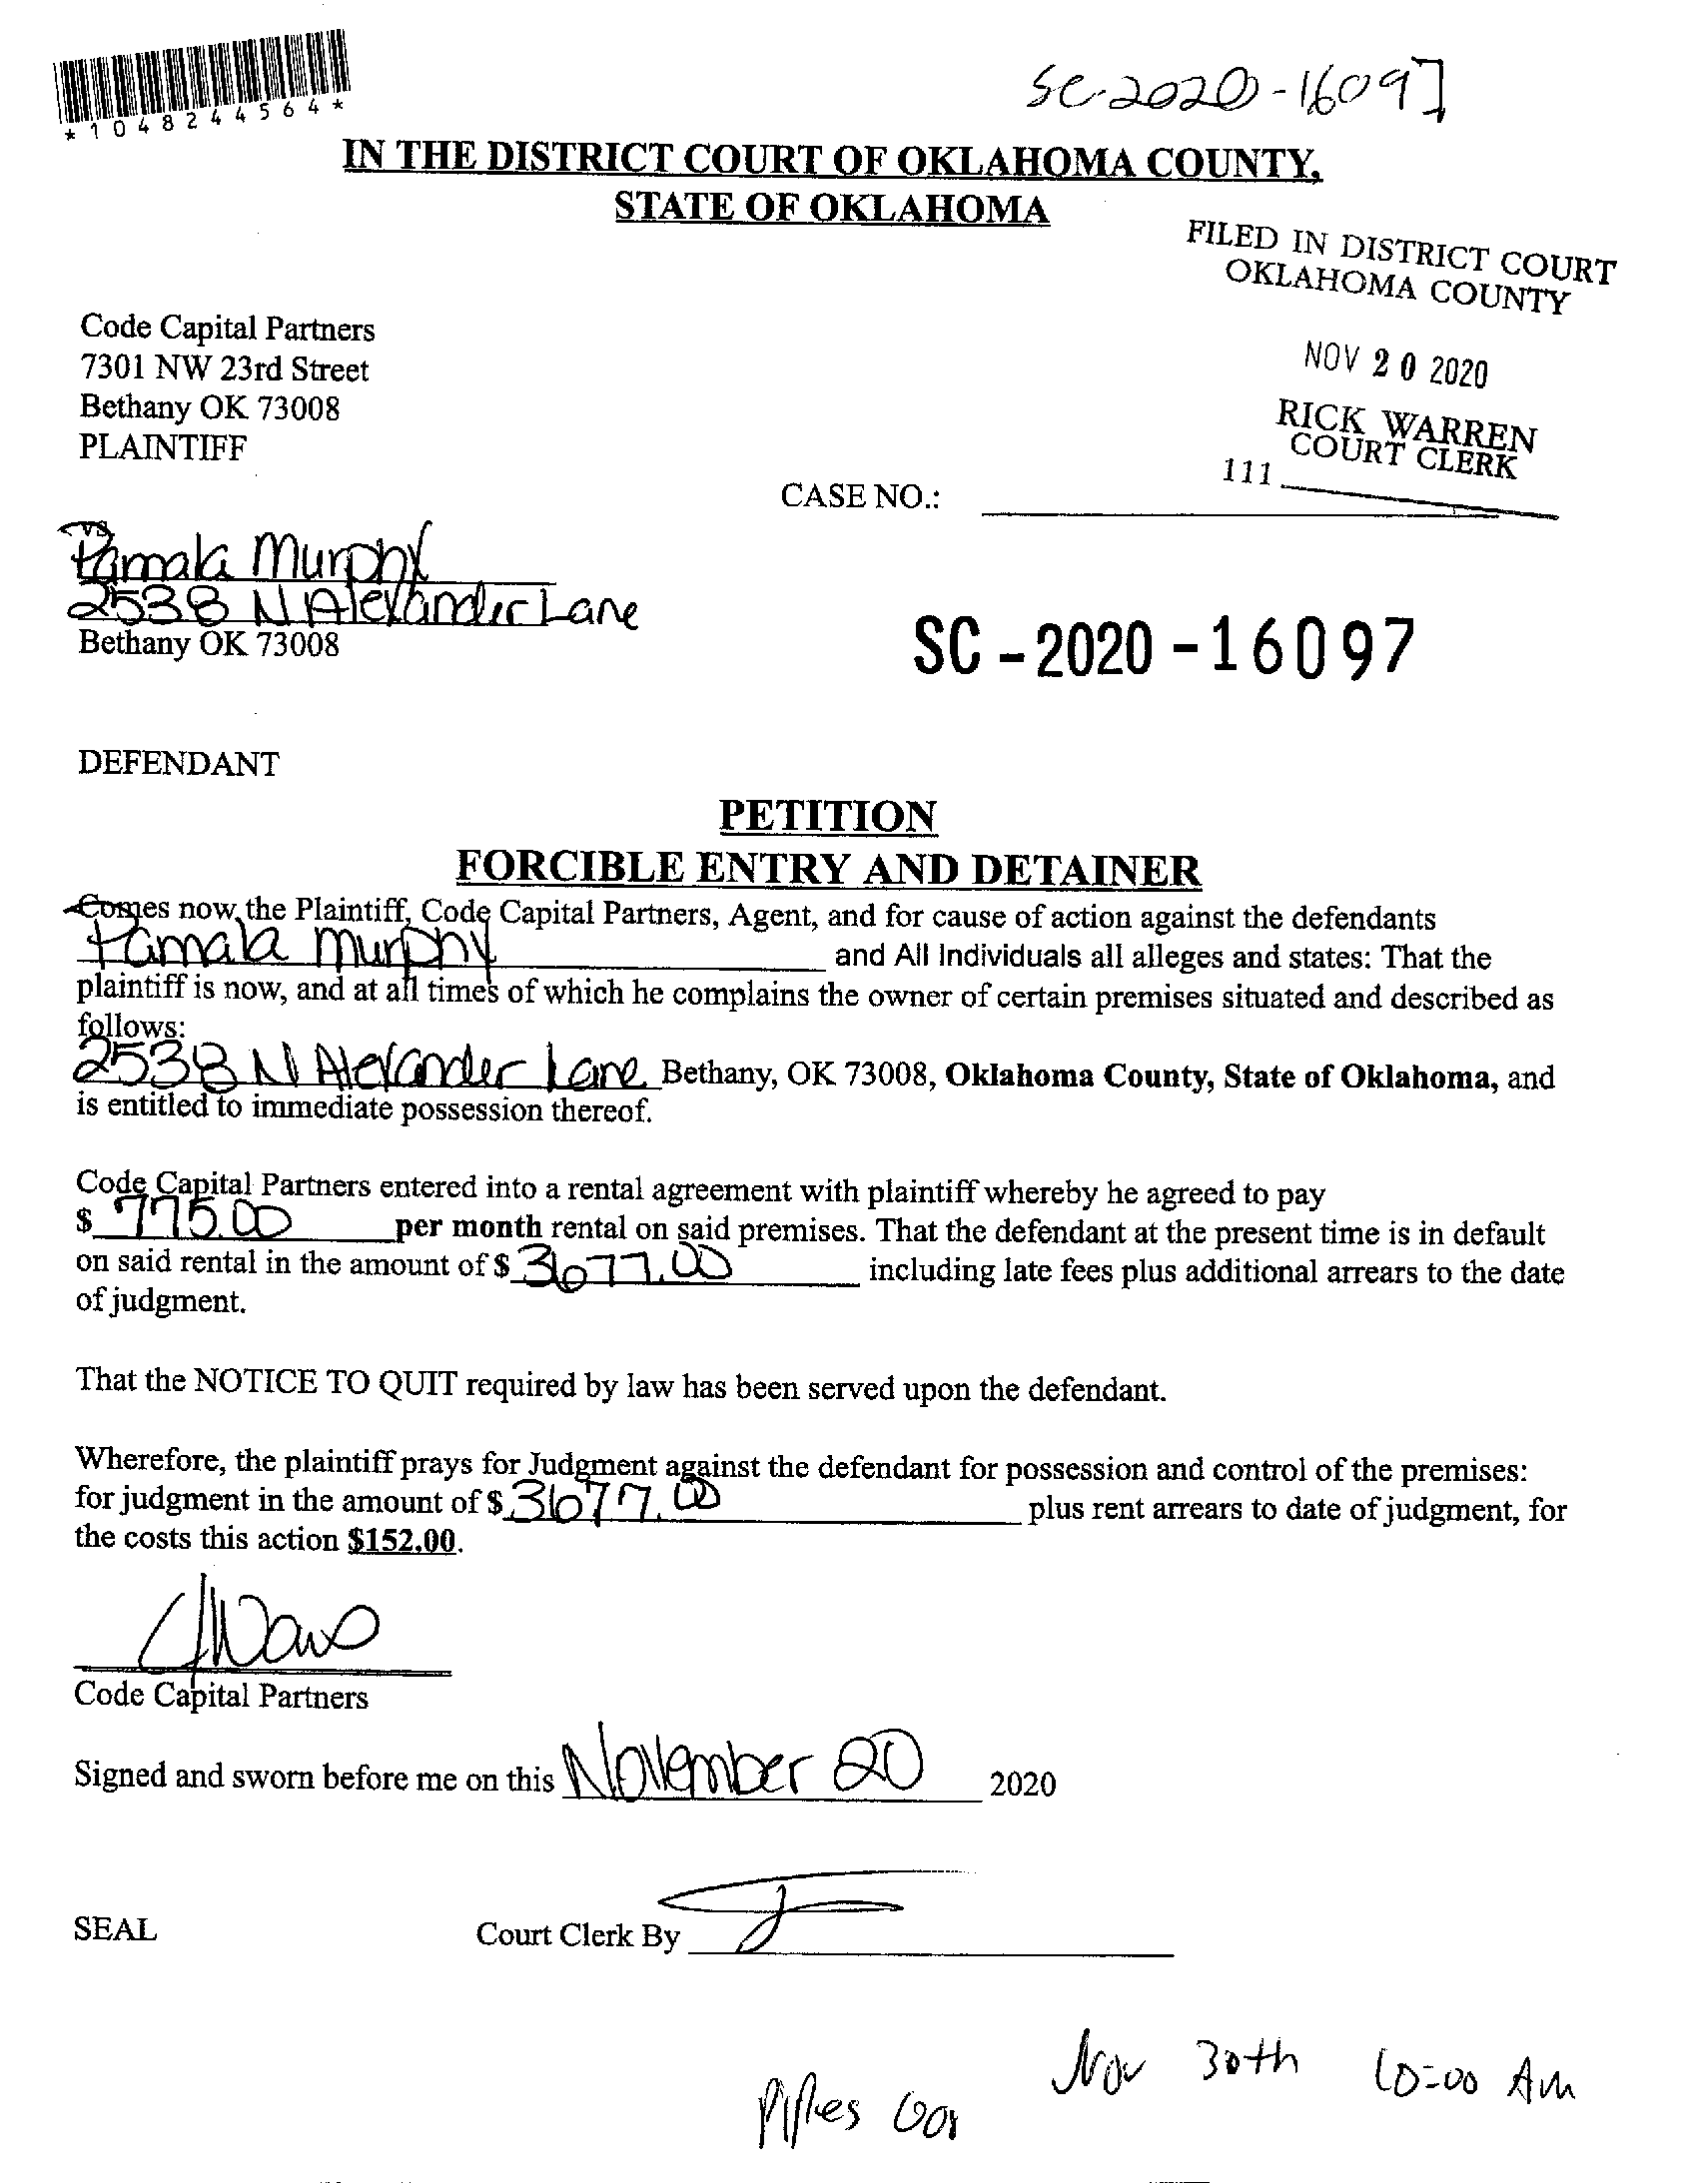 *1048244564*
SC-2020-16097
IN THE DISTRICT COURT OF OKLAHOMA COUNTY,
STATE OF OKLAHOMA
FILED IN DISTRICT COURT
OKLAHOMA COUNTY
NOV 20 2020
RICK WARREN
COURT CLERK
111
Code Capital Partners
7301 NW 23rd Street
Bethany OK 73008
PLAINTIFF
CASE NO.:
vs.
Pamala Murphy
2538 N Alexander Lane
Bethany OK 73008
SC-2020-16097
DEFENDANT
PETITION
FORCIBLE ENTRY AND DETAINER
Comes now, the Plaintiff, Code Capital Partners, Agent, and for cause of action against the defendants
Pamala Murphy and All Individuals all alleges and states: That the
plaintiff is now, and at all times of which he complains the owner of certain premises situated and described as
follows:
2538 N Alexander Lane Bethany, OK 73008, Oklahoma County, State of Oklahoma, and
is entitled to immediate possession thereof.
Code Capital Partners entered into a rental agreement with plaintiff whereby he agreed to pay
$ 775.00 per month rental on said premises. That the defendant at the present time is in default
on said rental in the amount of $ 3677.00 including late fees plus additional arrears to the date
of judgment.
That the NOTICE TO QUIT required by law has been served upon the defendant.
Wherefore, the plaintiff prays for Judgment against the defendant for possession and control of the premises:
for judgment in the amount of $ 3677.00 plus rent arrears to date of judgment, for
the costs this action $152.00.
Code Capital Partners
Signed and sworn before me on this November 20 2020
SEAL
Court Clerk By
Nov 30th 10:00 AM